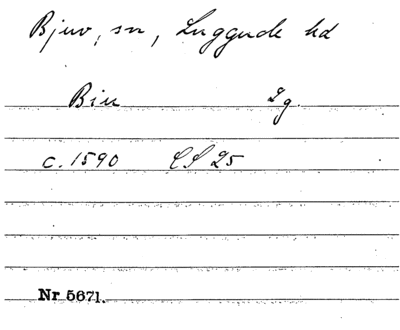 Bjuv, sn, Luggude hd
Biu Lg.
c. 1590 CS 25
Nr 5671.